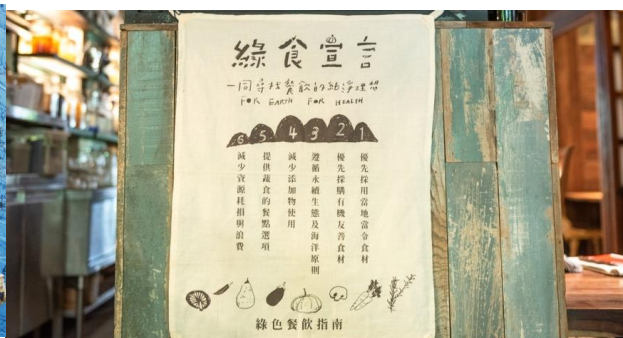 綠食宣言
一同尋找餐飲的純淨理想
FOR EARTH FOR HEALTH
6 5 4 3 2 1
優先採用當地當令食材
優先採購有機友善食材
遵循永續生態及海洋原則
減少添加物使用
提供蔬食的餐點選項
減少資源耗損與浪費
綠色餐飲指南